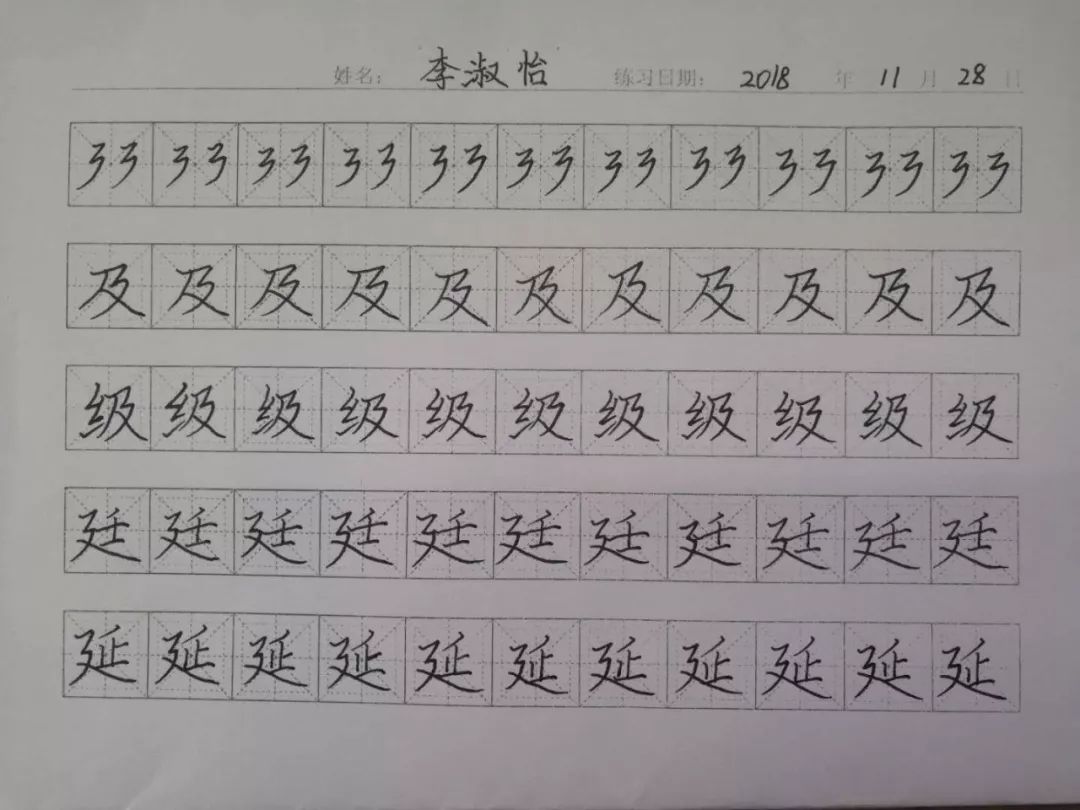 姓名: 李淑怡 练习日期: 2018 年 11 月 28 日
㇋㇋ ㇋㇋ ㇋㇋ ㇋㇋ ㇋㇋ ㇋㇋ ㇋㇋ ㇋㇋ ㇋㇋ ㇋㇋ ㇋㇋
及 及 及 及 及 及 及 及 及 及 及
级 级 级 级 级 级 级 级 级 级 级
廷 廷 廷 廷 廷 廷 廷 廷 廷 廷 廷
延 延 延 延 延 延 延 延 延 延 延